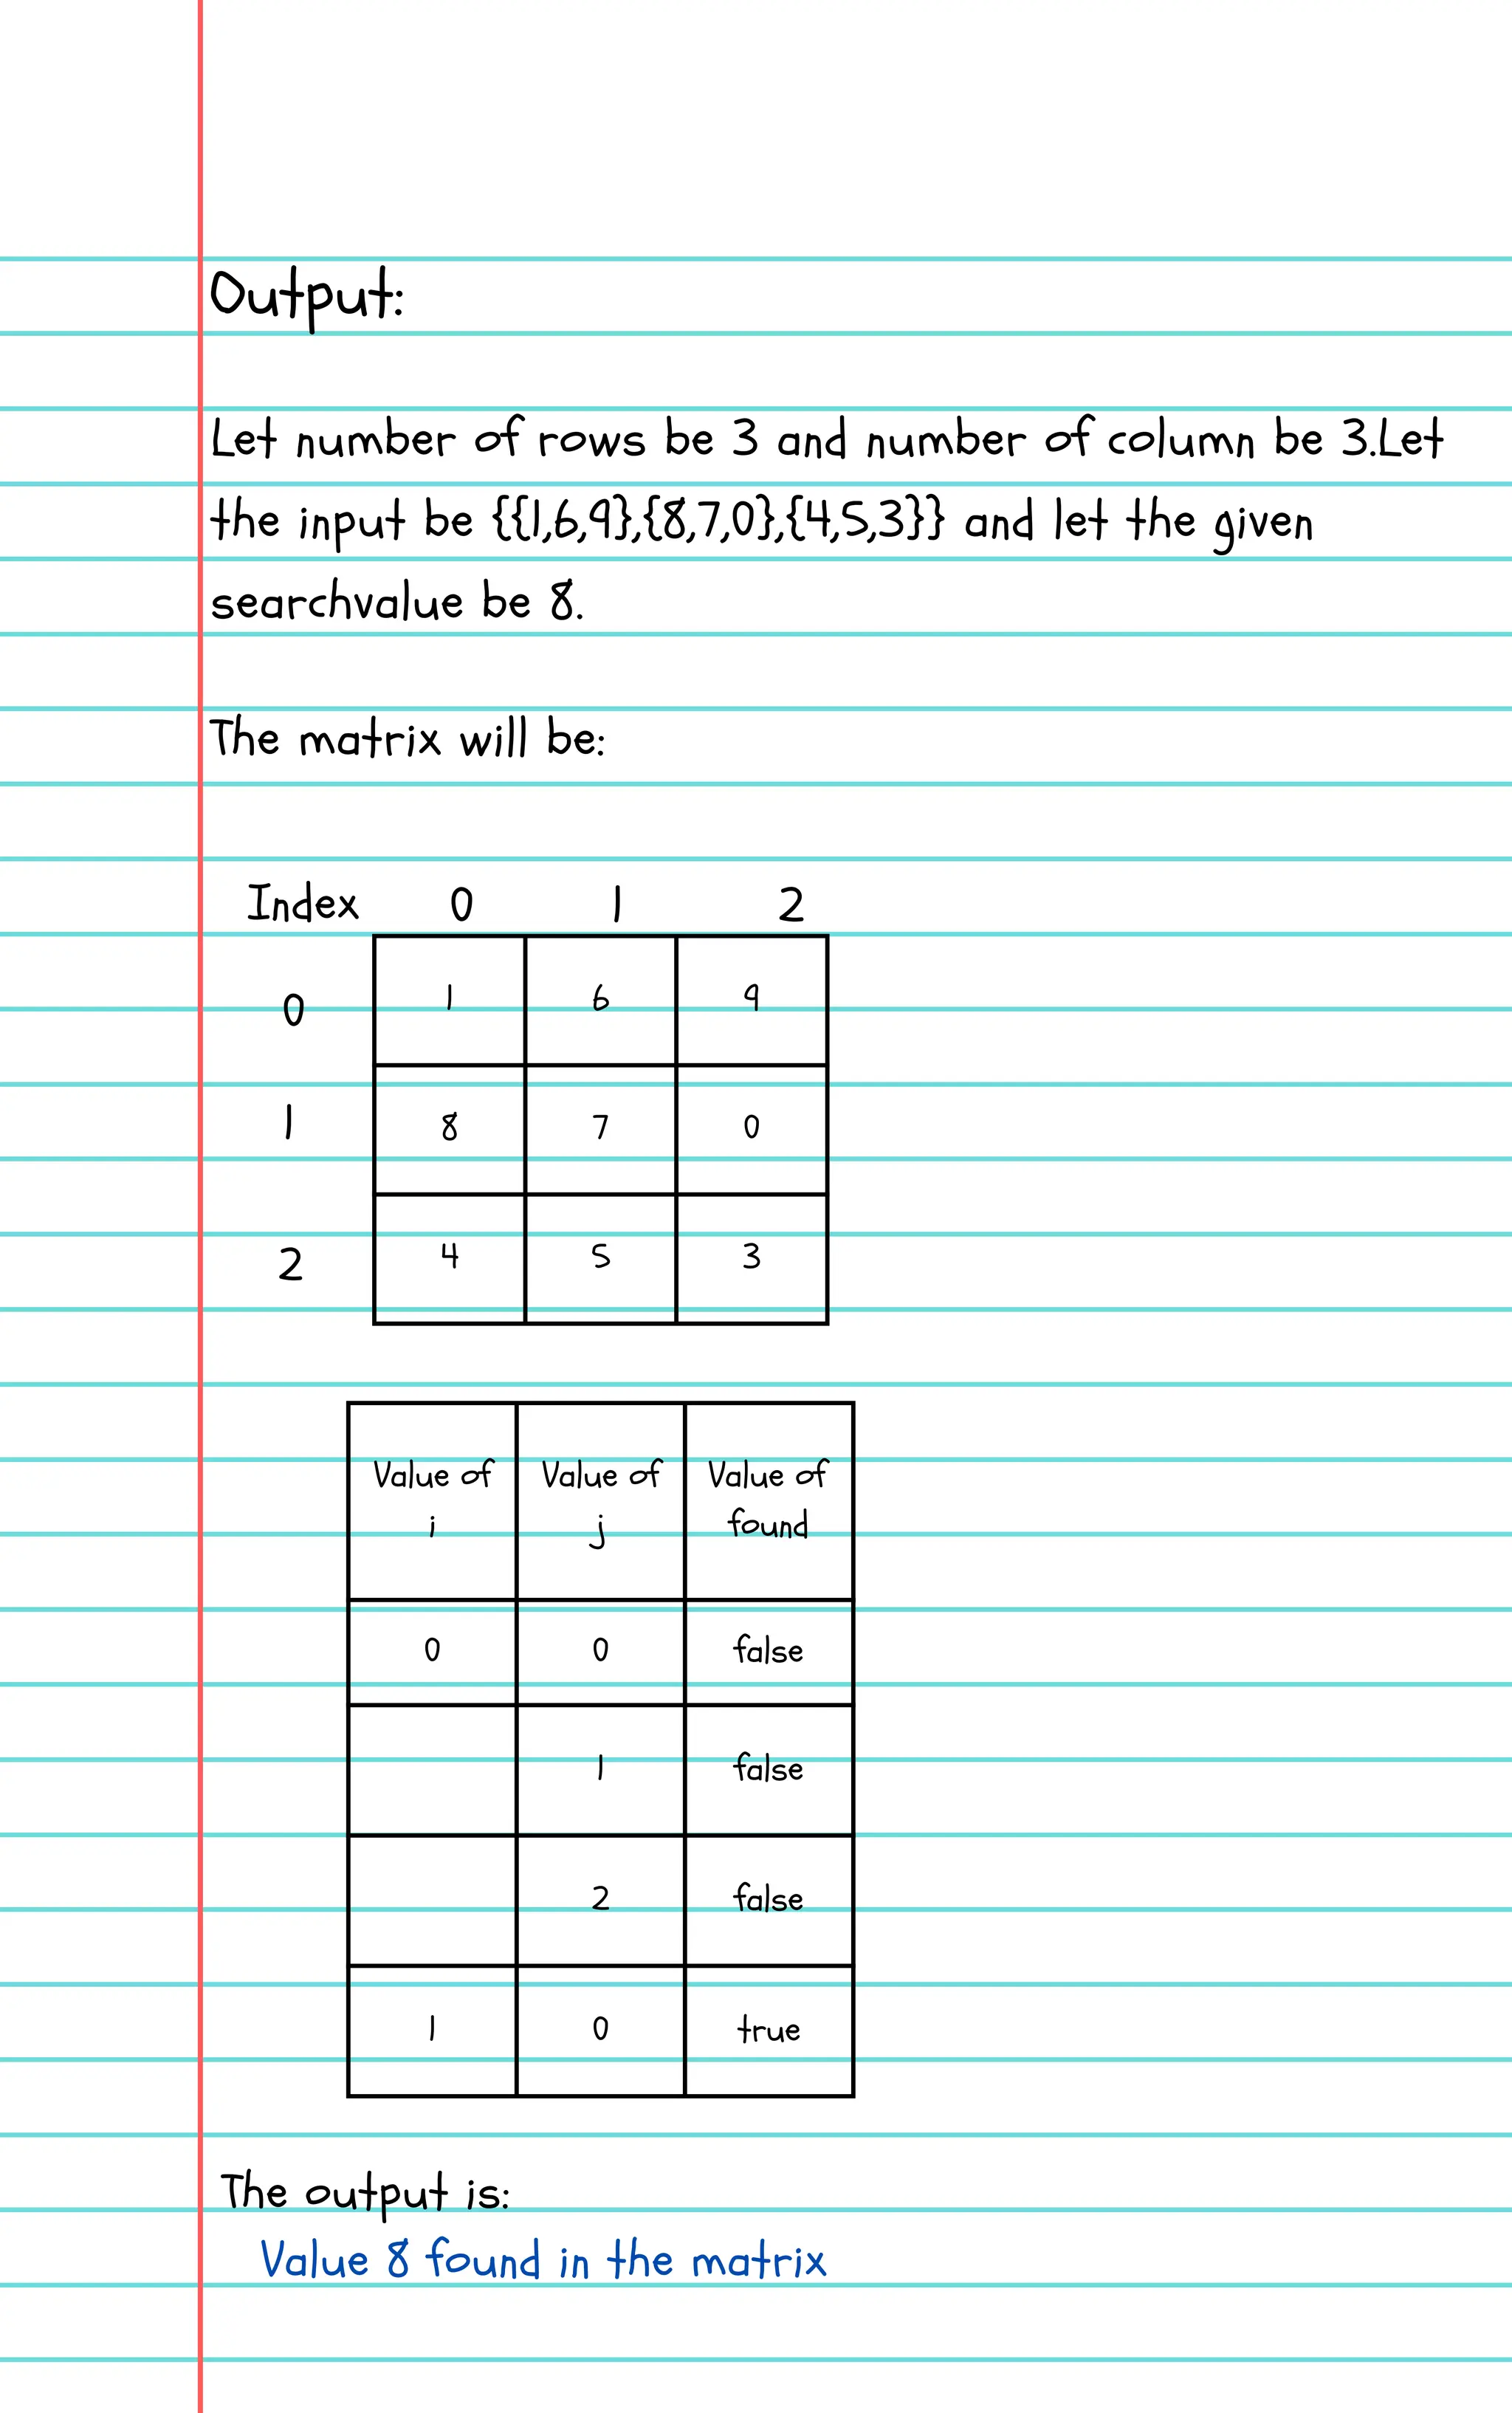 Output:
Let number of rows be 3 and number of column be 3.Let
the input be {{1,6,9},{8,7,0},{4,5,3}} and let the given
searchvalue be 8.
The matrix will be:
Index 0 1 2
0 1 6 9
1 8 7 0
2 4 5 3
Value of Value of Value of
i j found
0 0 false
1 false
2 false
1 0 true
The output is:
Value 8 found in the matrix